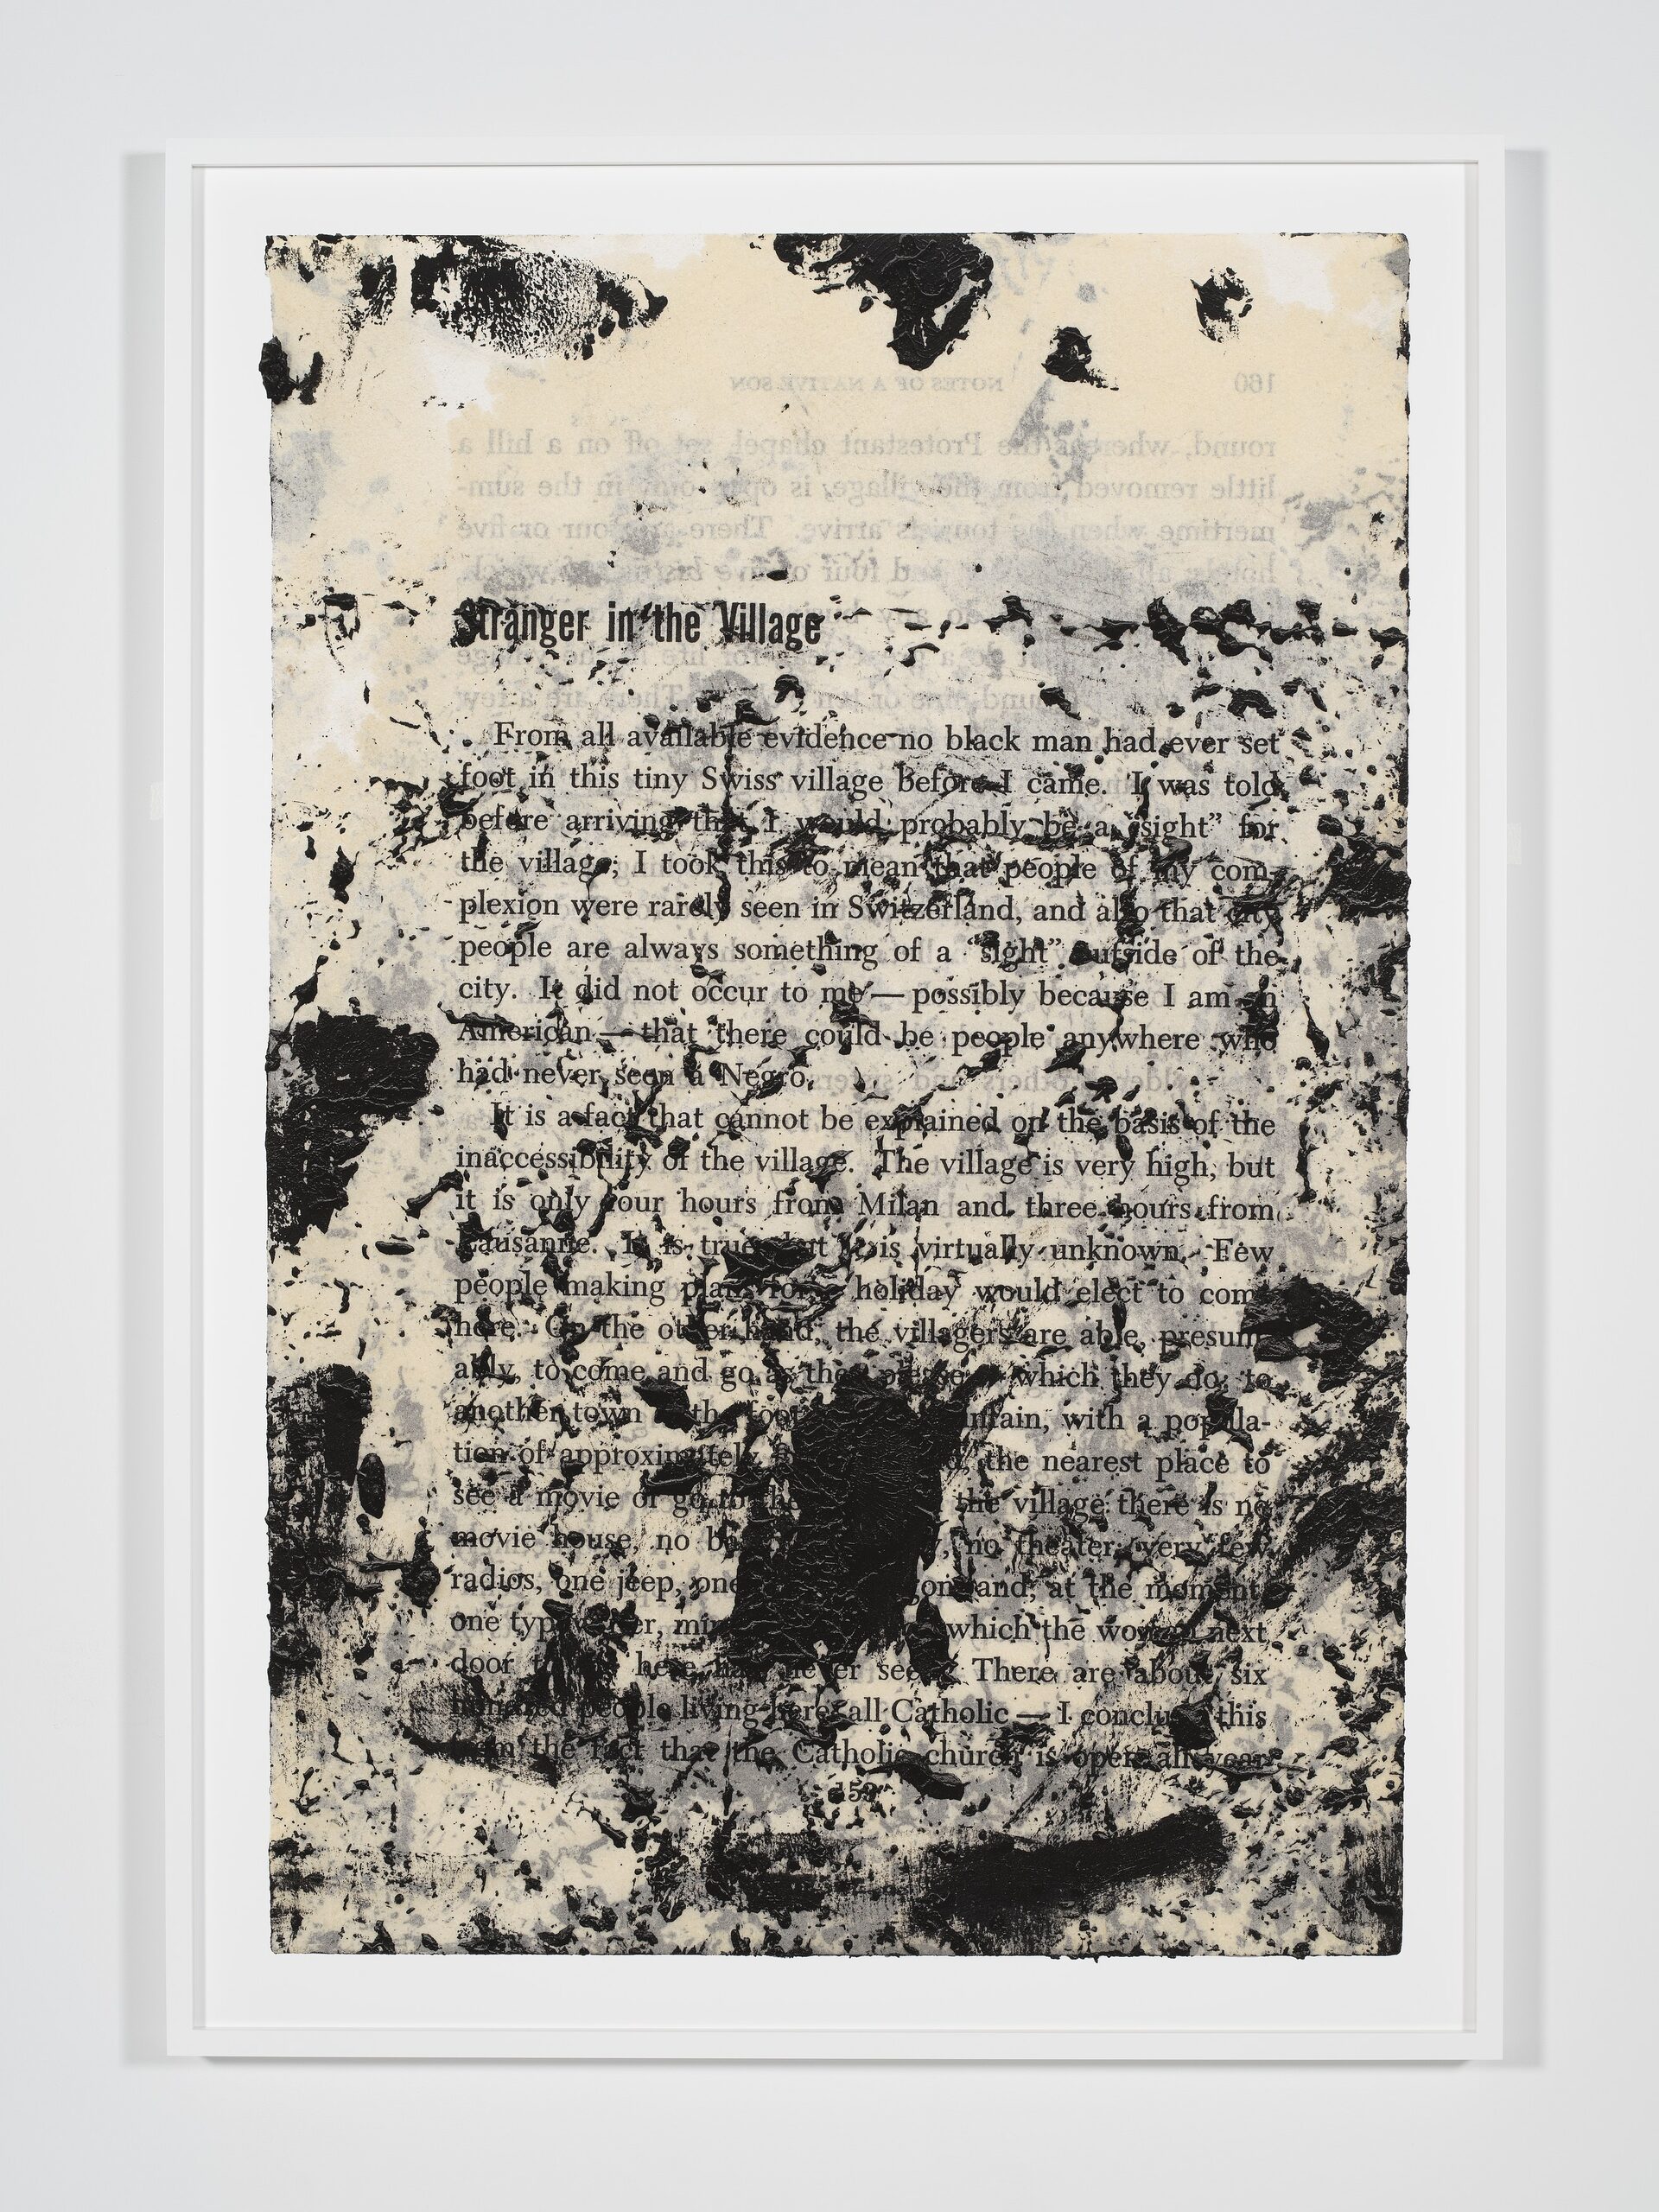 160 NOTES OF A NATIVE SON
round, whereas the Protestant chapel, set off on a hill a
little removed from the village, is open only in the sum-
mertime when the tourists arrive. There are four or five
Stranger in the Village
From all available evidence no black man had ever set
foot in this tiny Swiss village before I came. I was told
before arriving that I would probably be a “sight” for
the village; I took this to mean that people of my com-
plexion were rarely seen in Switzerland, and also that city
people are always something of a “sight” outside of the
city. It did not occur to me — possibly because I am an
American — that there could be people anywhere who
had never seen a Negro.
It is a fact that cannot be explained on the basis of the
inaccessibility of the village. The village is very high, but
it is only four hours from Milan and three hours from
Lausanne. It is true that it is virtually unknown. Few
people making plans for a holiday would elect to come
here. On the other hand, the villagers are able, presum-
ably, to come and go as they please — which they do: to
another town at the foot mountain, with a popula-
tion of approximately the nearest place to
see a movie or go to the the village there is no
movie house, no no theater; very few
radios, one jeep, one and, at the moment,
one typewriter, which the woman next
door to me here had never seen. There are about six
hundred people living here, all Catholic — I conclude this
from the fact that the Catholic church is open all year
159